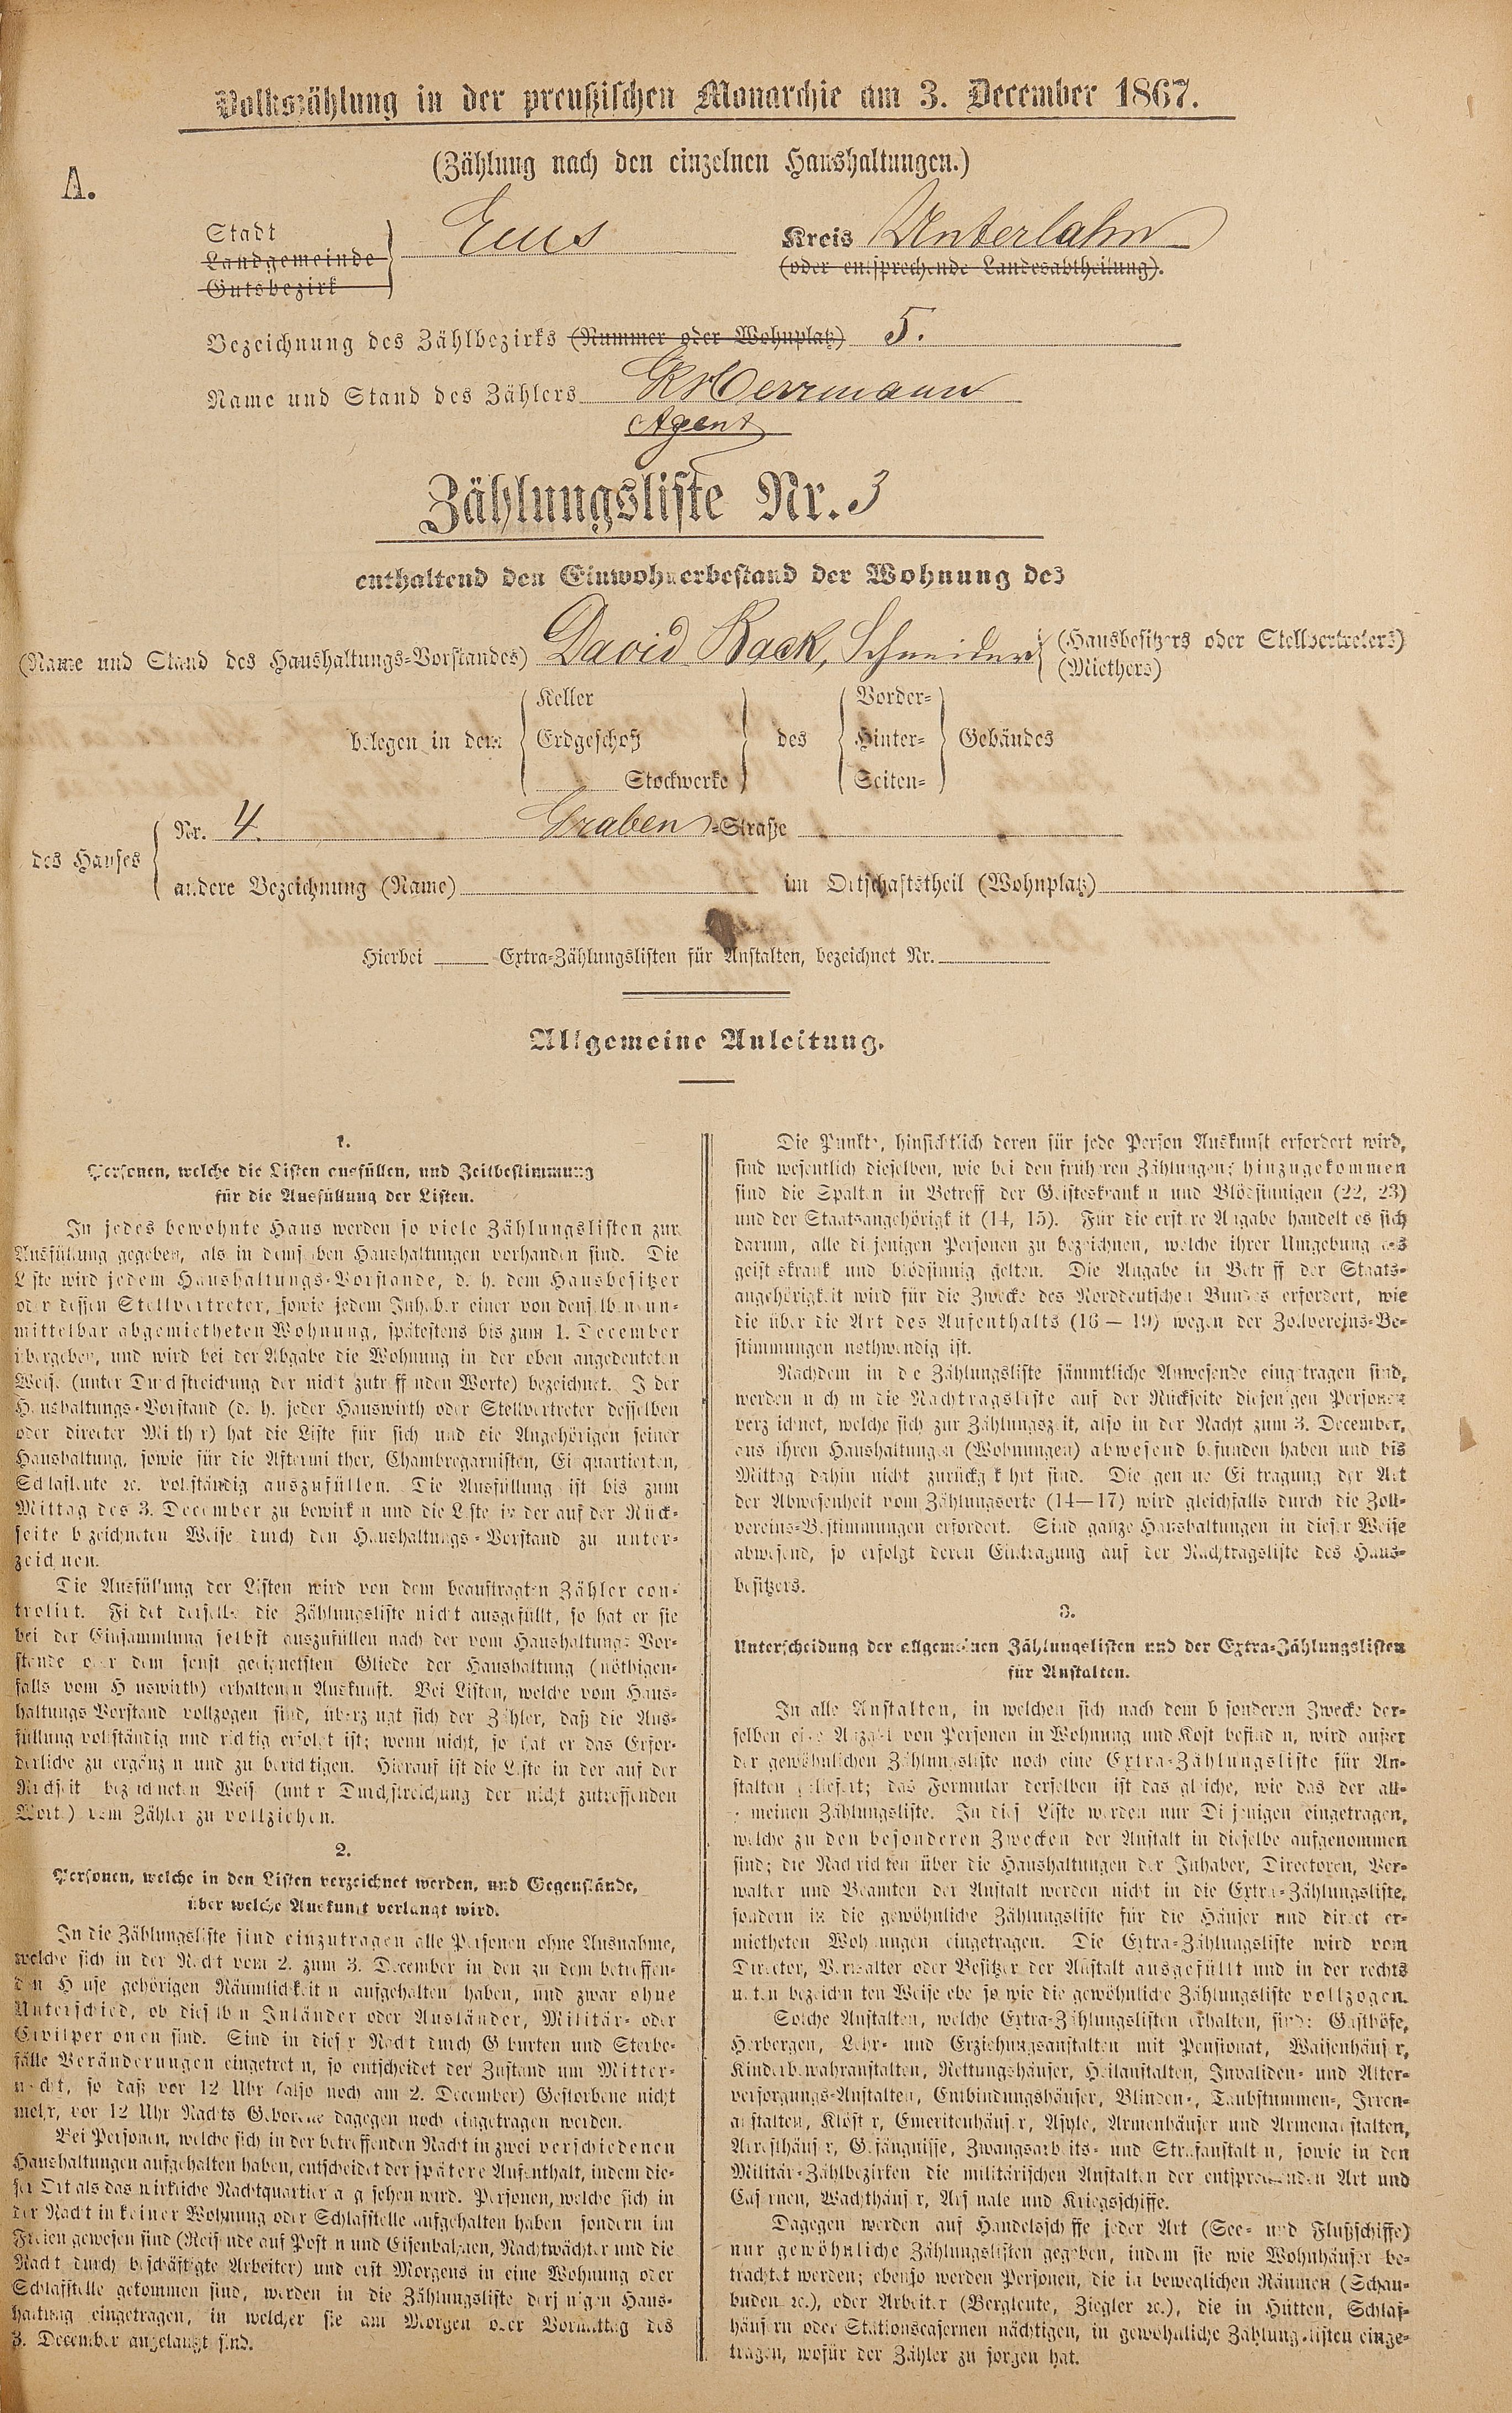 Volkszählung in der preußischen Monarchie am 3. December 1867.
(Zählung nach den einzelnen Haushaltungen.)
A.
Stadt
Landgemeinde
Gutsbezirk
Ems
Kreis Unterlahn
(oder entsprechende Landesabtheilung).
Bezeichnung des Zählbezirks (Nummer oder Wohnplatz) 5.
Name und Stand des Zählers Herrmann
Agent
Zählungsliste Nr. 3
enthaltend den Einwohnerbestand der Wohnung des
(Name und Stand des Haushaltungs-Vorstandes) David Back, Schneider (Hausbesitzers oder Stellvertreters)
(Miethers)
belegen in dem Keller Erdgeschoß Stockwerke des Vorder- Hinter- Seiten- Gebäudes
des Hauses Nr. 4. Graben-Straße
andere Bezeichnung (Name) im Ortschaftstheil (Wohnplatz)
Hierbei Extra-Zählungslisten für Anstalten, bezeichnet Nr.
Allgemeine Anleitung.
1.
Personen, welche die Listen ausfüllen, und Zeitbestimmung
für die Ausfüllung der Listen.
In jedes bewohnte Haus werden so viele Zählungslisten zur
Ausfüllung gegeben, als in demselben Haushaltungen vorhanden sind. Die
Liste wird jedem Haushaltungs-Vorstande, d. h. dem Hausbesitzer
oder dessen Stellvertreter, sowie jedem Inhaber einer von denselben un-
mittelbar abgemietheten Wohnung, spätestens bis zum 1. December
übergeben, und wird bei der Abgabe die Wohnung in der oben angedeuteten
Weise (unter Durchstreichung der nicht zutreffenden Worte) bezeichnet. Jeder
Haushaltungs-Vorstand (d. h. jeder Hauswirth oder Stellvertreter desselben
oder directer Miether) hat die Liste für sich und die Angehörigen seiner
Haushaltung, sowie für die Aftermiether, Chambregarnisten, Einquartierten,
Schlafleute ꝛc. vollständig auszufüllen. Die Ausfüllung ist bis zum
Mittag des 3. December zu bewirken und die Liste in der auf der Rück-
seite bezeichneten Weise durch den Haushaltungs-Vorstand zu unter-
zeichnen.
Die Ausfüllung der Listen wird von dem beauftragten Zähler con-
trolirt. Findet derselbe die Zählungsliste nicht ausgefüllt, so hat er sie
bei der Einsammlung selbst auszufüllen nach der vom Haushaltungs-Vor-
stande oder dem sonst geeignetsten Gliede der Haushaltung (nöthigen-
falls vom Hauswirth) erhaltenen Auskunft. Bei Listen, welche vom Haus-
haltungs-Vorstand vollzogen sind, überzeugt sich der Zähler, daß die Aus-
füllung vollständig und richtig erfolgt ist; wenn nicht, so hat er das Erfor-
derliche zu ergänzen und zu berichtigen. Hierauf ist die Liste in der auf der
Rückseite bezeichneten Weise (unter Durchstreichung der nicht zutreffenden
Worte) vom Zähler zu vollziehen.
2.
Personen, welche in den Listen verzeichnet werden, und Gegenstände,
über welche Auskunft verlangt wird.
In die Zählungsliste sind einzutragen alle Personen ohne Ausnahme,
welche sich in der Nacht vom 2. zum 3. December in den zu dem betreffen-
den Hause gehörigen Räumlichkeiten aufgehalten haben, und zwar ohne
Unterschied, ob dieselben Inländer oder Ausländer, Militär- oder
Civilpersonen sind. Sind in dieser Nacht durch Geburten und Sterbe-
fälle Veränderungen eingetreten, so entscheidet der Zustand um Mitter-
nacht, so daß vor 12 Uhr (also noch am 2. December) Gestorbene nicht
mehr, vor 12 Uhr Nachts Geborene dagegen noch eingetragen werden.
Bei Personen, welche sich in der betreffenden Nacht in zwei verschiedenen
Haushaltungen aufgehalten haben, entscheidet der spätere Aufenthalt, indem die-
ser Ort als das wirkliche Nachtquartier angesehen wird. Personen, welche sich in
der Nacht in keiner Wohnung oder Schlafstelle aufgehalten haben sondern im
Freien gewesen sind (Reisende auf Posten und Eisenbahnen, Nachtwächter und die
Nacht durch beschäftigte Arbeiter) und erst Morgens in eine Wohnung oder
Schlafstelle gekommen sind, werden in die Zählungsliste derjenigen Haus-
haltung eingetragen, in welcher sie am Morgen oder Vormittag des
3. December angelangt sind.
Die Punkte, hinsichtlich deren für jede Person Auskunft erfordert wird,
sind wesentlich dieselben, wie bei den früheren Zählungen; hinzugekommen
sind die Spalten in Betreff der Geisteskranken und Blödsinnigen (22, 23)
und der Staatsangehörigkeit (14, 15). Für die erstere Angabe handelt es sich
darum, alle diejenigen Personen zu bezeichnen, welche ihrer Umgebung als
geisteskrank und blödsinnig gelten. Die Angabe in Betreff der Staats-
angehörigkeit wird für die Zwecke des Norddeutschen Bundes erfordert, wie
die über die Art des Aufenthalts (16—19) wegen der Zollvereins-Be-
stimmungen nothwendig ist.
Nachdem in die Zählungsliste sämmtliche Anwesende eingetragen sind,
werden noch in die Nachtragsliste auf der Rückseite diejenigen Personen
verzeichnet, welche sich zur Zählungszeit, also in der Nacht zum 3. December,
aus ihren Haushaltungen (Wohnungen) abwesend befunden haben und bis
Mittag dahin nicht zurückgekehrt sind. Die genaue Eintragung der Art
der Abwesenheit vom Zählungsorte (14—17) wird gleichfalls durch die Zoll-
vereins-Bestimmungen erfordert. Sind ganze Haushaltungen in dieser Weise
abwesend, so erfolgt deren Eintragung auf der Nachtragsliste des Haus-
besitzers.
3.
Unterscheidung der allgemeinen Zählungslisten und der Extra-Zählungslisten
für Anstalten.
In alle Anstalten, in welchen sich nach dem besonderen Zwecke der-
selben eine Anzahl von Personen in Wohnung und Kost befinden, wird außer
der gewöhnlichen Zählungsliste noch eine Extra-Zählungsliste für An-
stalten geliefert; das Formular derselben ist das gleiche, wie das der all-
gemeinen Zählungsliste. In diese Liste werden nur Diejenigen eingetragen,
welche zu den besonderen Zwecken der Anstalt in dieselbe aufgenommen
sind; die Nachrichten über die Haushaltungen der Inhaber, Directoren, Ver-
walter und Beamten der Anstalt werden nicht in die Extra-Zählungsliste,
sondern in die gewöhnliche Zählungsliste für die Häuser und direct er-
mietheten Wohnungen eingetragen. Die Extra-Zählungsliste wird vom
Director, Verwalter oder Besitzer der Anstalt ausgefüllt und in der rechts
unten bezeichneten Weise ebenso wie die gewöhnliche Zählungsliste vollzogen.
Solche Anstalten, welche Extra-Zählungslisten erhalten, sind: Gasthöfe,
Herbergen, Lehr- und Erziehungsanstalten mit Pensionat, Waisenhäuser,
Kinderbewahranstalten, Rettungshäuser, Heilanstalten, Invaliden- und Alter-
versorgungs-Anstalten, Entbindungshäuser, Blinden-, Taubstummen-, Irren-
anstalten, Klöster, Emeritenhäuser, Asyle, Armenhäuser und Armenanstalten,
Arresthäuser, Gefängnisse, Zwangsarbeits- und Strafanstalten, sowie in den
Militär-Zählbezirken die militärischen Anstalten der entsprechenden Art und
Casernen, Wachthäuser, Arsenale und Kriegsschiffe.
Dagegen werden auf Handelsschiffe jeder Art (See- und Flußschiffe)
nur gewöhnliche Zählungslisten gegeben, indem sie wie Wohnhäuser be-
trachtet werden; ebenso werden Personen, die in beweglichen Räumen (Schau-
buden ꝛc.), oder Arbeiter (Bergleute, Ziegler ꝛc.), die in Hütten, Schlaf-
häusern oder Stationscasernen nächtigen, in gewöhnliche Zählungslisten einge-
tragen, wofür der Zähler zu sorgen hat.